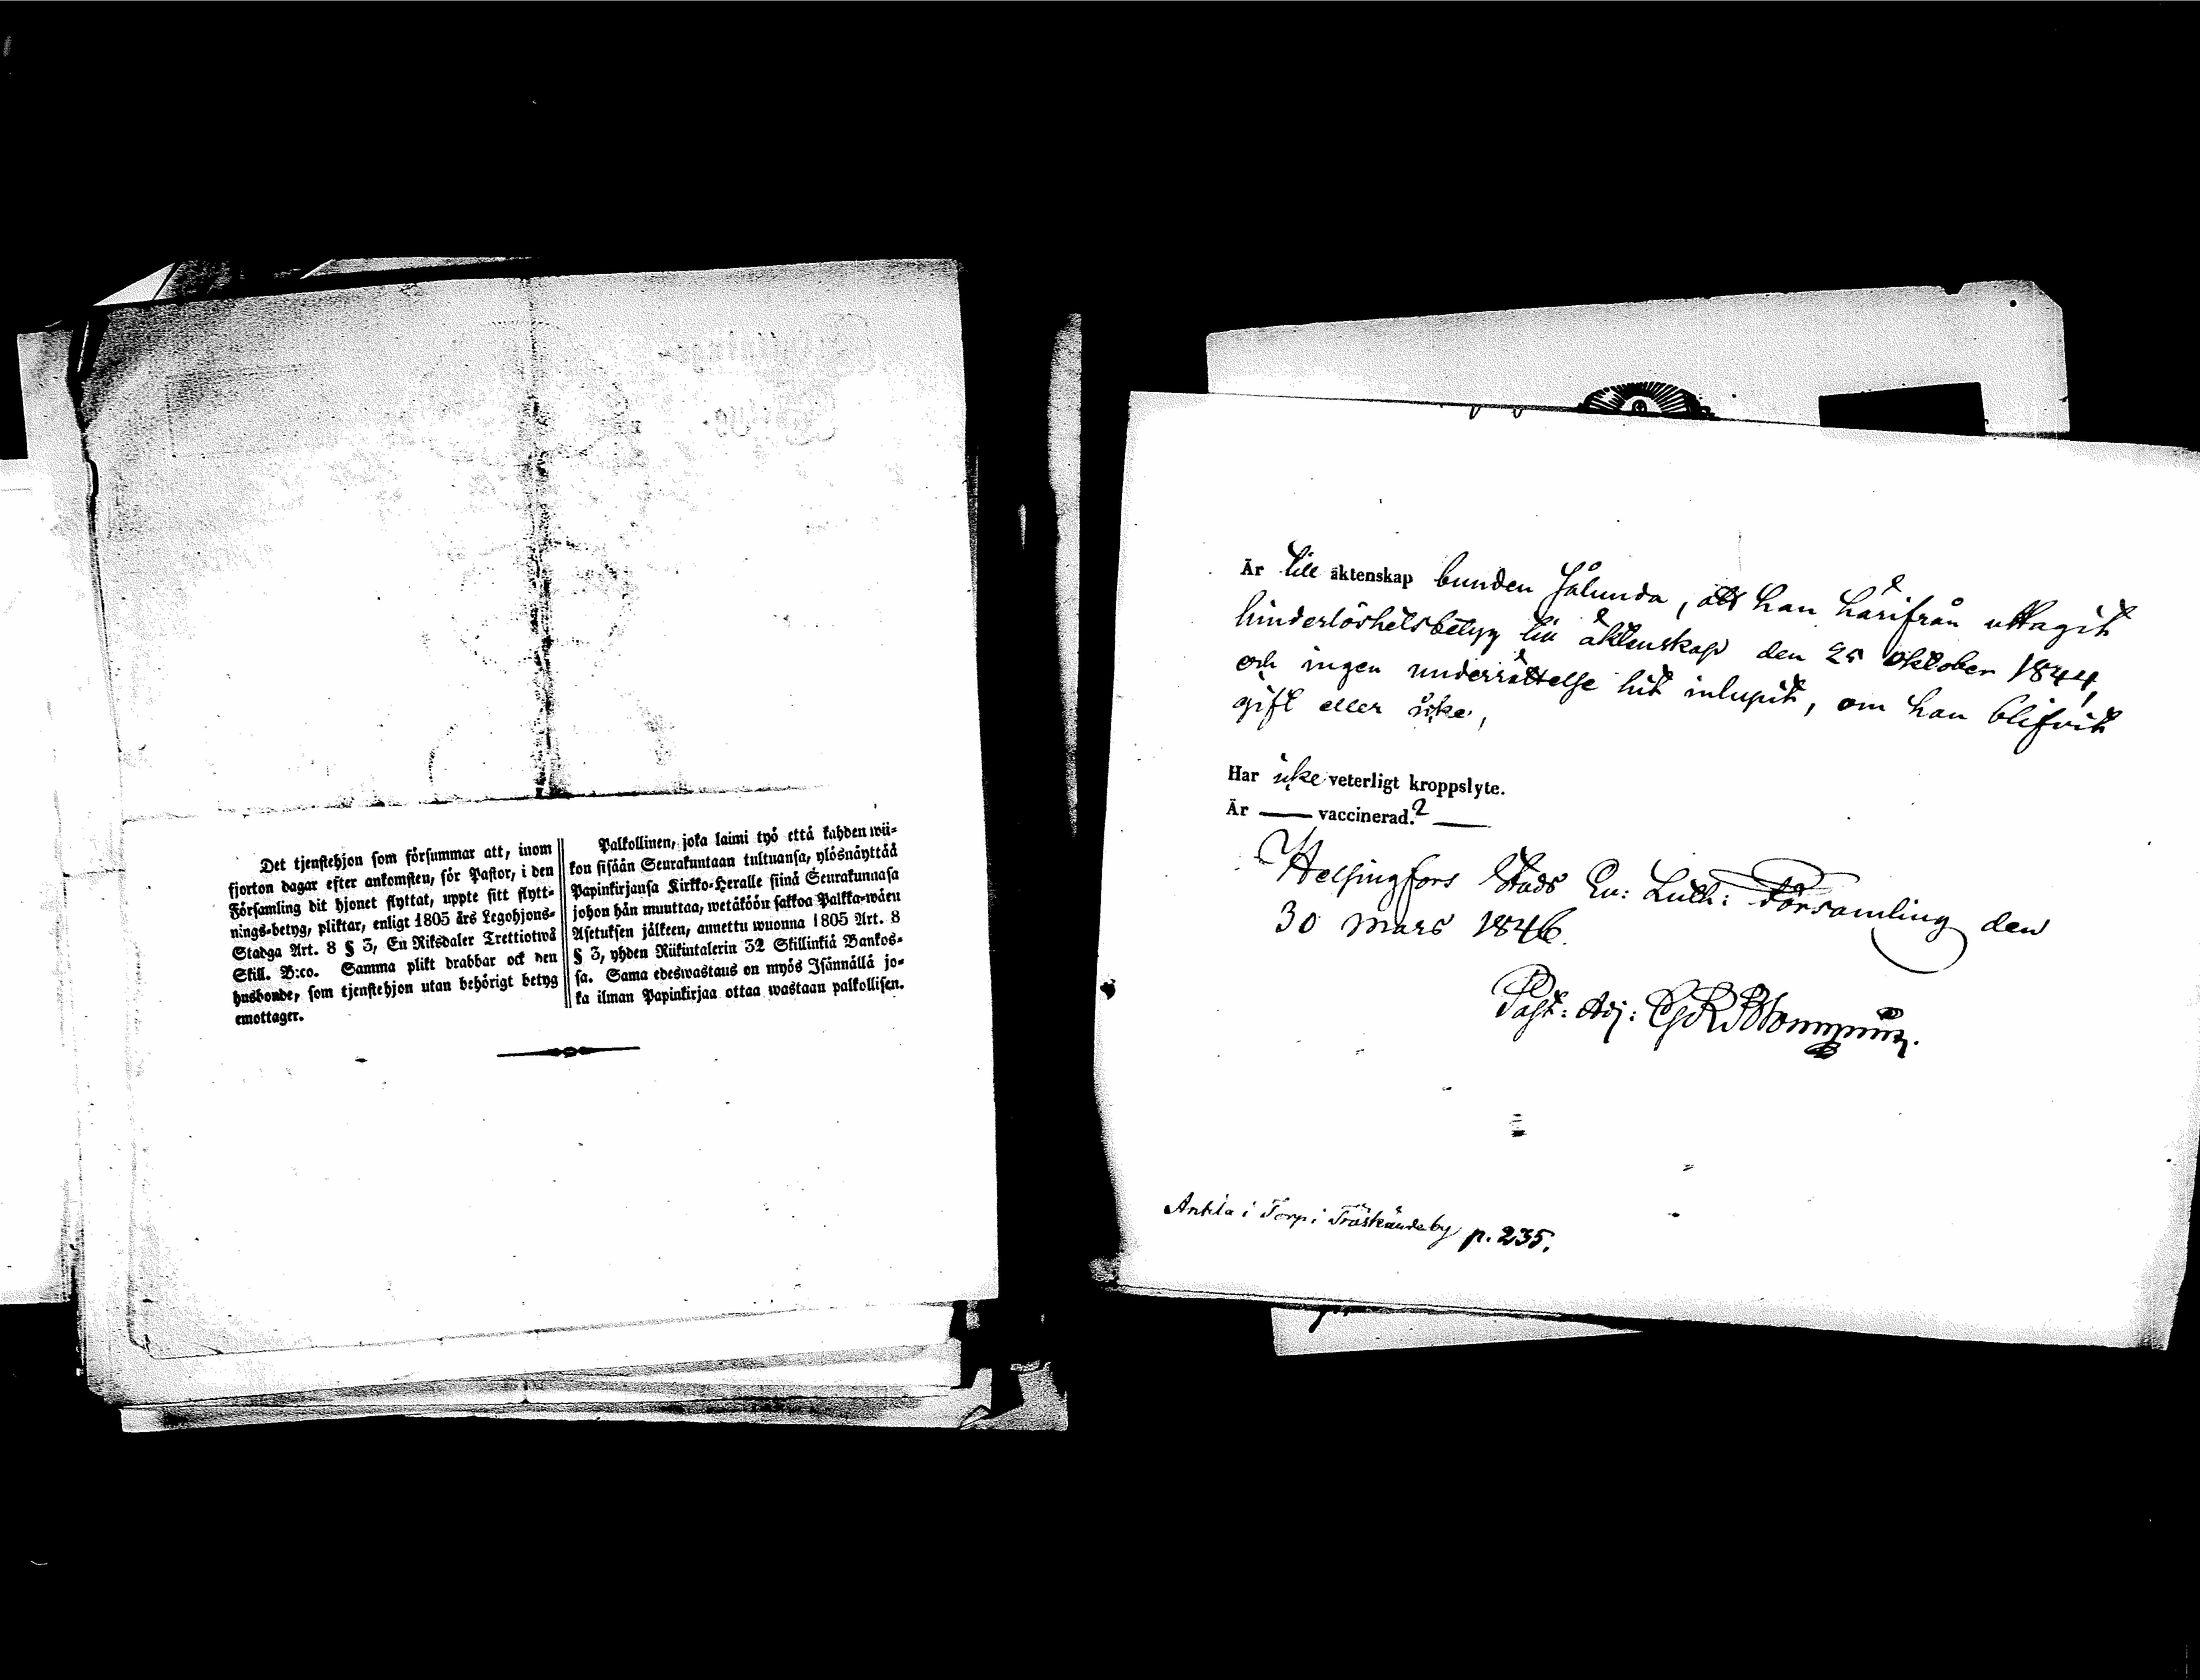 Det tjenstehjon som försummar att, inom
fjorton dagar efter ankomsten, för Pastor, i den
Församling dit hjonet flyttat, uppte sitt flytt-
nings-betyg, pliktar, enligt 1805 års Legohjons-
Stadga Art. 8 § 3, En Riksdaler Trettiotwå
Skill. B:co. Samma plikt drabbar ock den
husbonde, som tjenstehjon utan behörigt betyg
emottager.
Palkollinen, joka laimi työ että kahden wii-
kon sisään Seurakuntaan tultuansa, ylösnäyttää
Papinkirjansa Kirkko-Herralle siinä Seurakunnasa
johon hän muuttaa, wetäköön sakkoa Palkka-wäen
Asetuksen jälkeen, annettu wuonna 1805 Art. 8
§ 3, yhden Riikintalerin 32 Skillinkiä Bankos-
sa. Sama edeswastaus on myös Isännällä jo-
ka ilman Papinkirjaa ottaa wastaan palkollisen.
Är till äktenskap bunden sålunda, att han härifrån uttagit
hinderlöshetsbetyg till äktenskap den 25 oktober 1844,
och ingen underrättelse hit inlupit, om han blifvit
gift eller icke,
Har icke veterligt kroppslyte.
Är —— vaccinerad.? ——
Helsingfors Stads Ev: Luth: Församling den
30 Mars 1846.
Past: Adj:
Antila i Torp i Träskändaby p. 235.